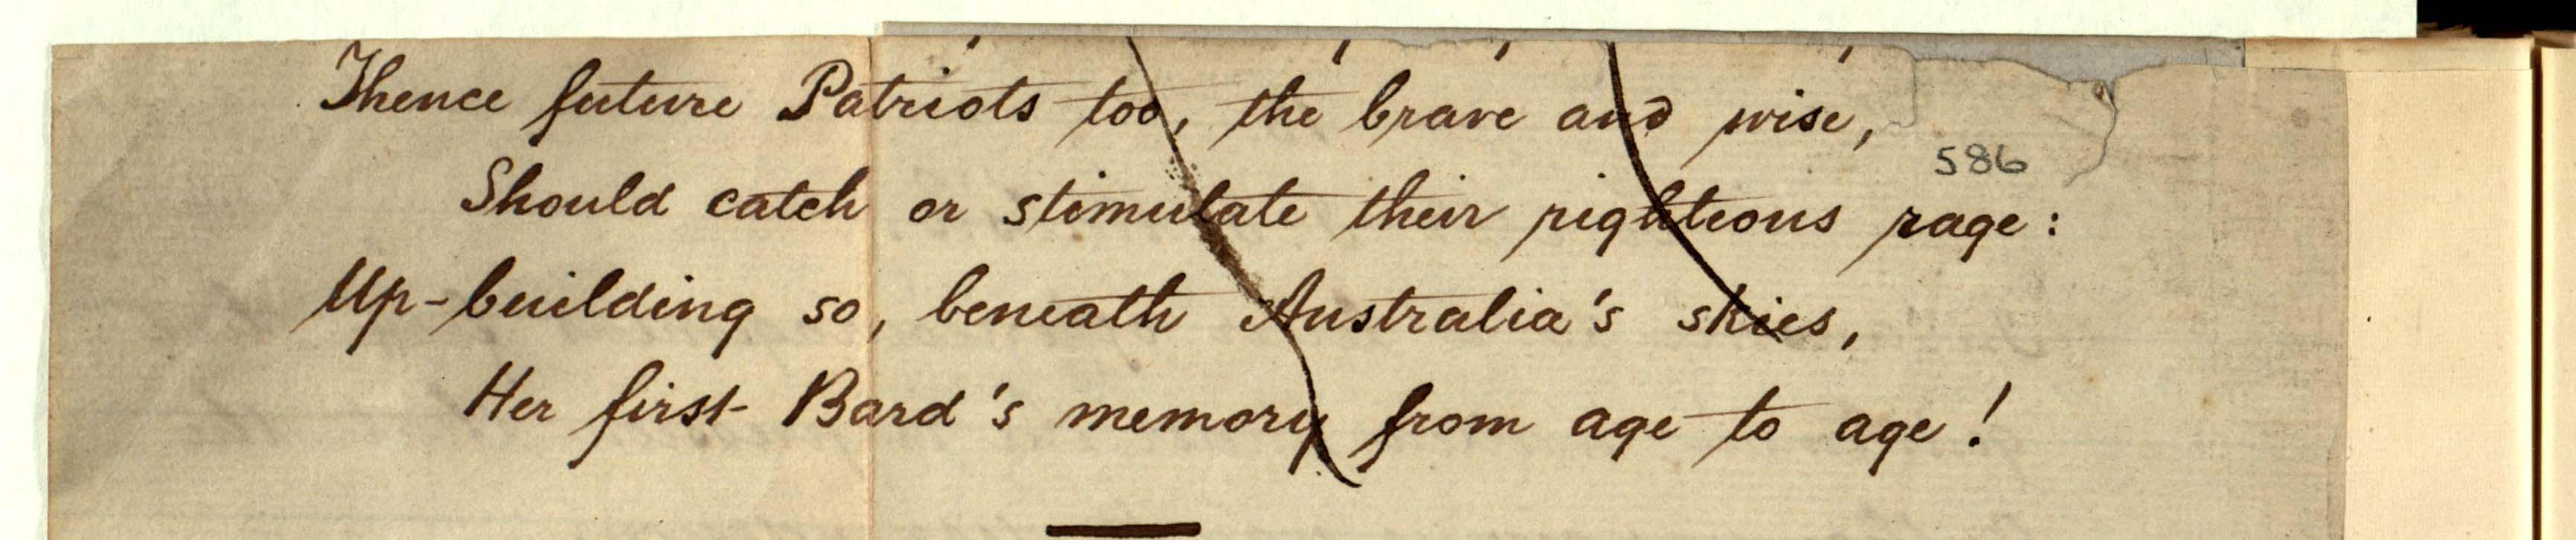 Thence future Patriots too, the brave and wise,
586
Should catch or stimulate their righteous rage:
Up-building so, beneath Australia's skies,
Her first Bard's memory from age to age!